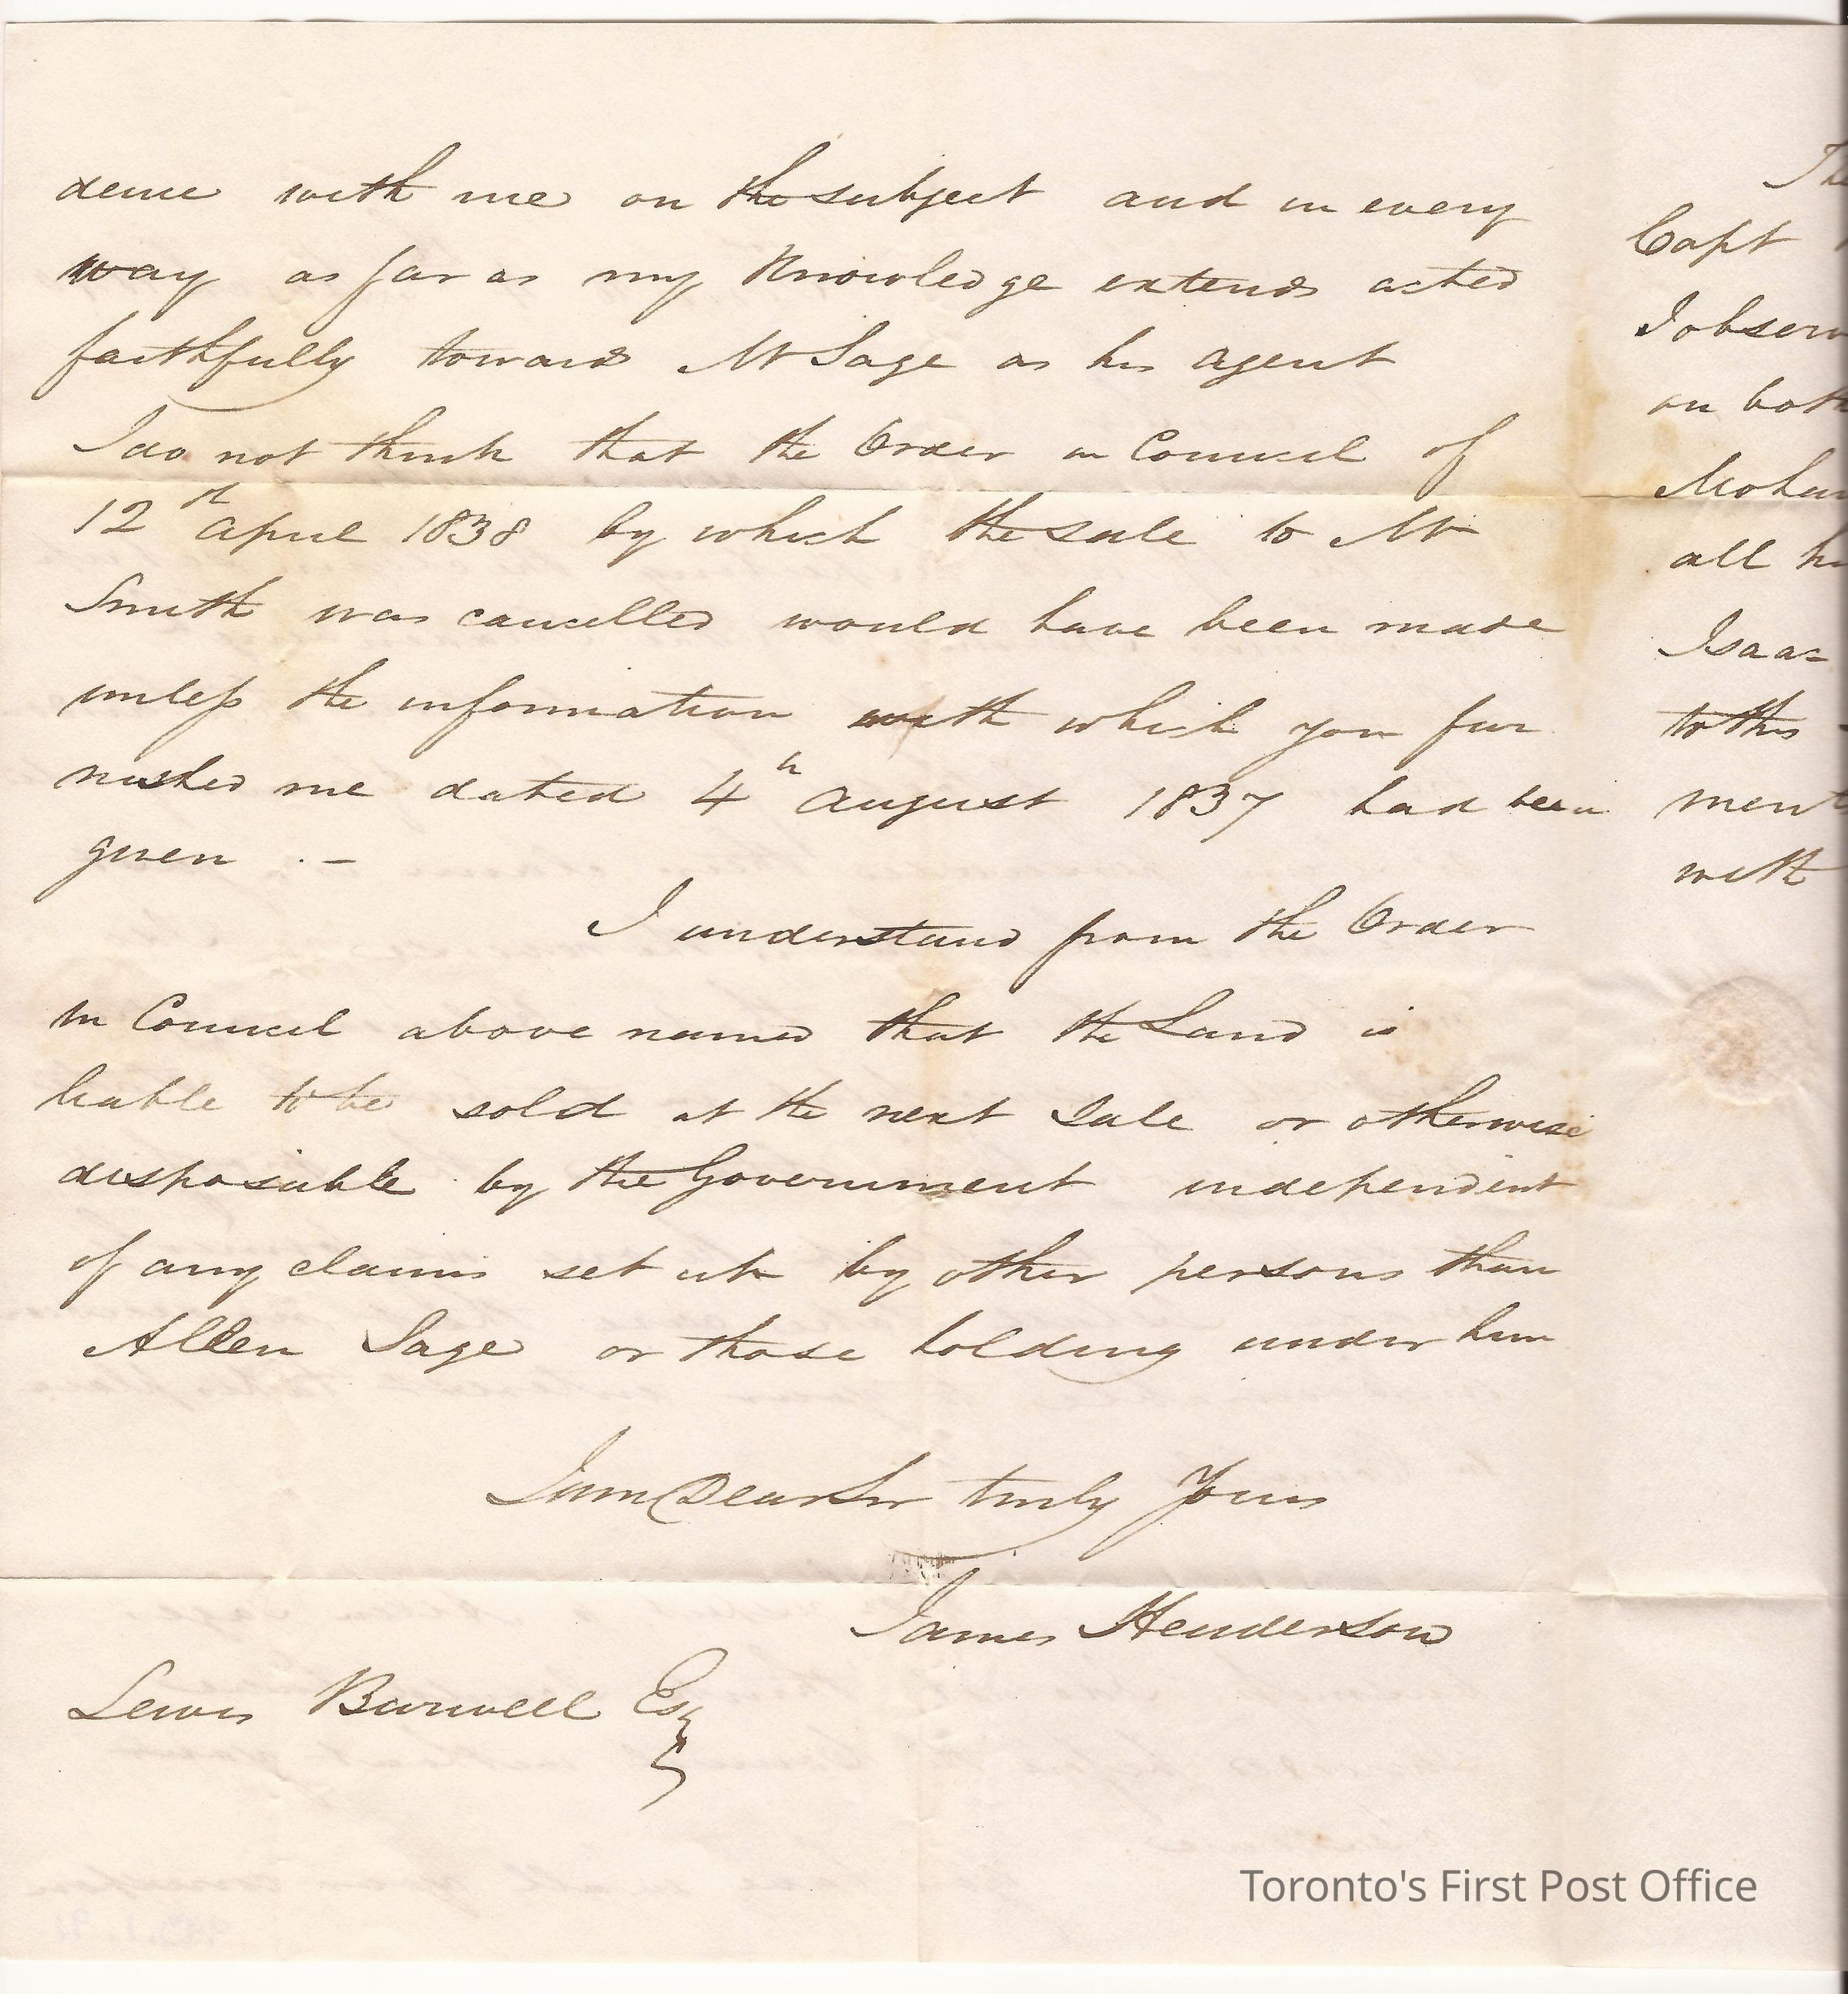 dence with me on the subject and in every
way as far as my Knowledge extends acted
faithfully toward Mr Sage as his agent
I do not think that the Order in Council of
12th April 1838 by which the sale to Mr
Smith was cancelled would have been made
unless the information with which you fur
nished me dated 4th August 1837 had been
given . –
I understand from the Order
in Council above named that the Land is
liable to be sold at the next Sale or otherwise
disposable by the Government independent
of any claims set up by other persons than
Allen Sage or those holding under him
I am Dear Sir truly Yours
James Henderson
Lewis Burwell Esq
The
Capt
I observ
on both
Mohaw
all h
Isaac
to this
ment
with
Toronto's First Post Office